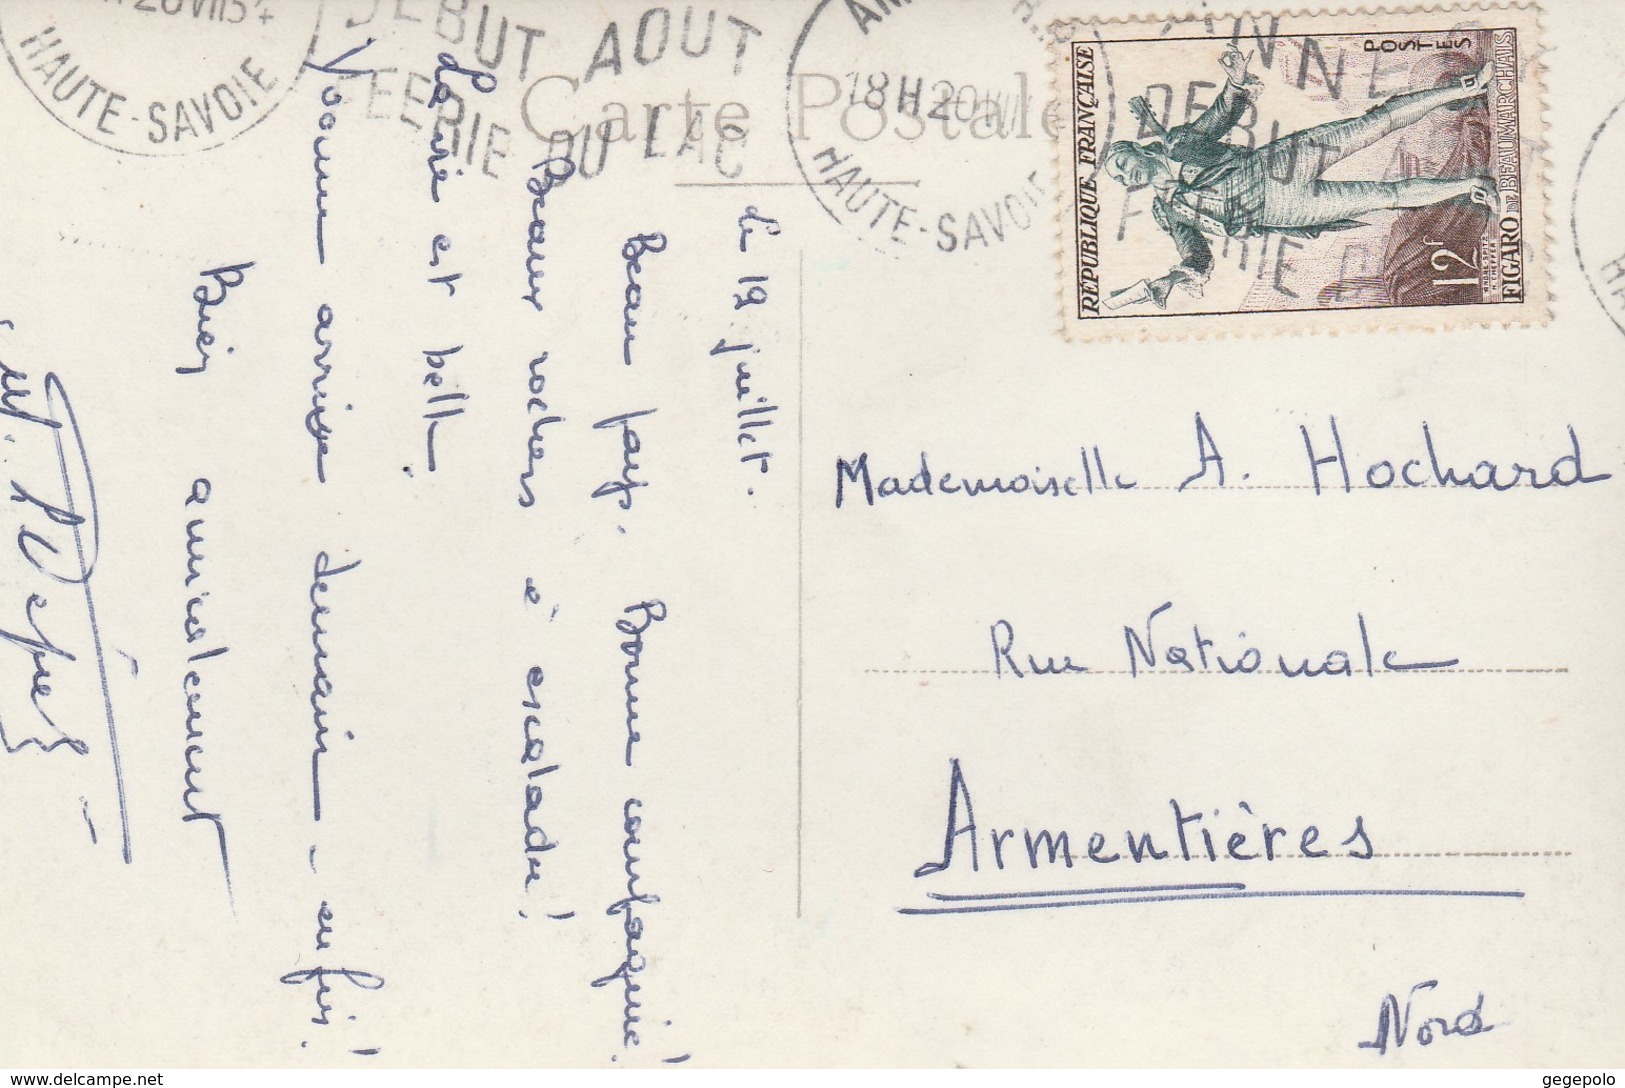 Carte Postale
20 VII 54
HAUTE-SAVOIE
DEBUT AOUT
FEERIE DU LAC
18H 20 VII
HAUTE-SAVOIE
ANNECY
DEBUT AOUT
FEERIE DU
POSTES
RÉPUBLIQUE FRANÇAISE
12f
FIGARO DE BEAUMARCHAIS
le 19 juillet.
Beau pays. Bonne compagnie!
Beaux rochers à escalader!
La vie est belle
Yvonne arrive demain - enfin!
Bien amicalement
Mademoiselle A. Hochard
Rue Nationale
Armentières
Nord
delcampe.net
gegepolo